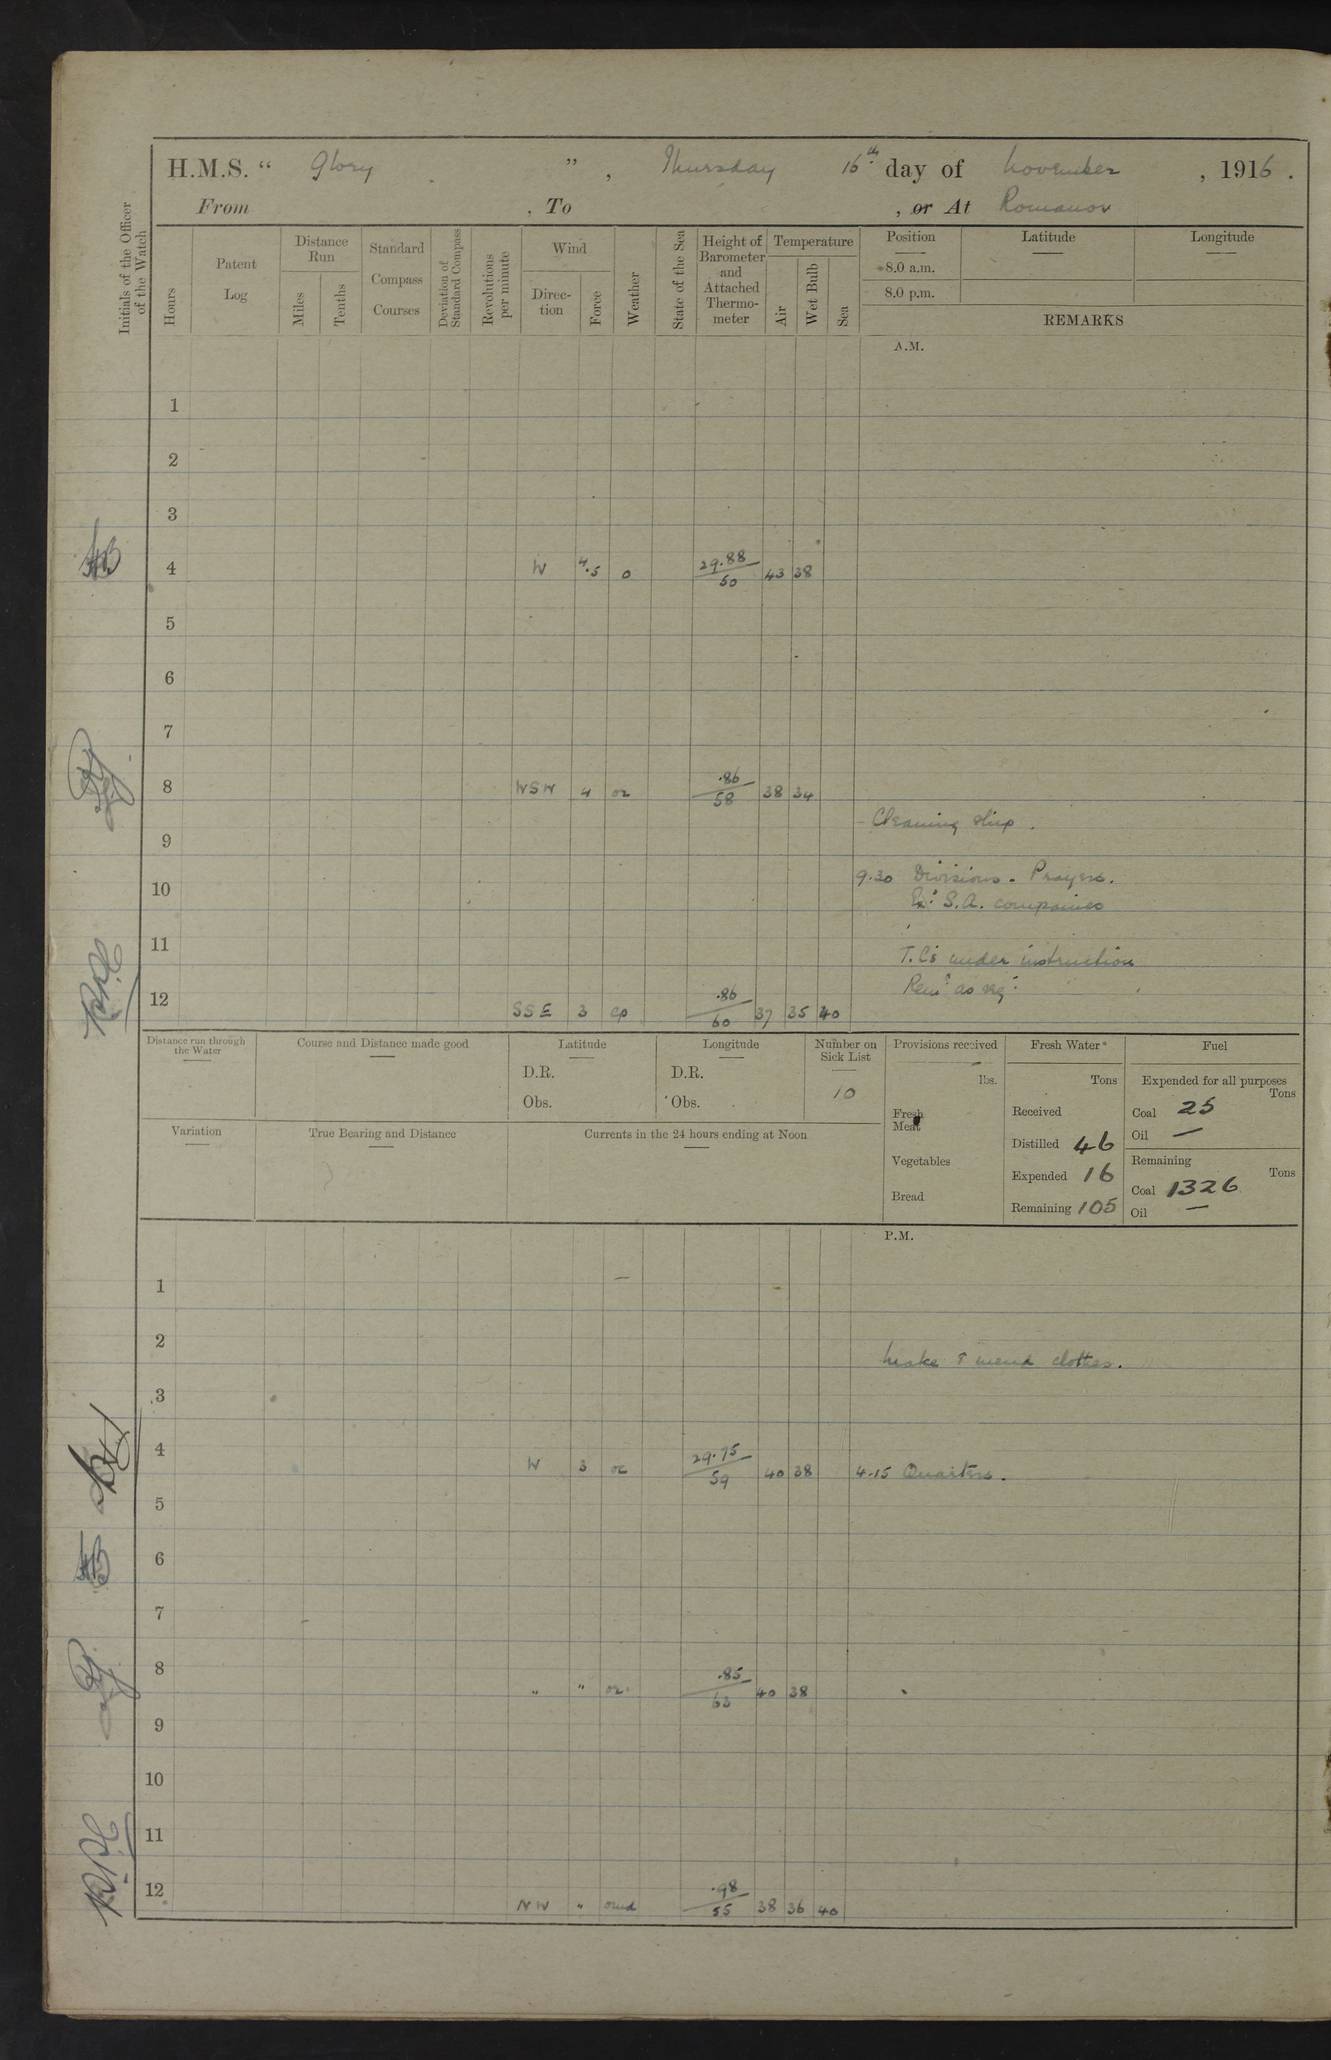 H.M.S. “ Glory ” , Thursday 16th day of November , 1916 .
From , To , or At Romanov
Initials of the Officer of the Watch
Hours
Patent Log
Distance Run
Miles
Tenths
Standard Compass Courses
Deviation of Standard Compass
Revolutions per minute
Wind
Direction
Force
Weather
State of the Sea
Height of Barometer and Attached Thermometer
Temperature
Air
Wet Bulb
Sea
Position Latitude Longitude
8.0 a.m.
8.0 p.m.
REMARKS
A.M.
1
2
3
4 W 4.5 o 29.88/50 43 38
5
6
7
8 WSW 4 .86/58 38 34
Cleaning ship .
9
9.30 Divisions . Prayers.
10
Ex: S.A. companies
11
T.C's under instruction
Rem: as req:
12 SSE 3 cp .86/60 37 35 40
Distance run through the Water
Course and Distance made good
Latitude
D.R.
Obs.
Longitude
D.R.
Obs.
Number on Sick List
10
Variation
True Bearing and Distance
Currents in the 24 hours ending at Noon
Provisions received
lbs.
Fresh Meat
Vegetables
Bread
Fresh Water*
Tons
Received
Distilled 46
Expended 16
Remaining 105
Fuel
Expended for all purposes
Tons
Coal 25
Oil —
Remaining
Tons
Coal 1326
Oil —
P.M.
1
2
Make & mend clothes.
3
4 W 3 oc 29.75/59 40 38 4.15 Quarters .
5
6
7
8 " " .85/63 40 38
9
10
11
12 NW " .98/55 38 36 40